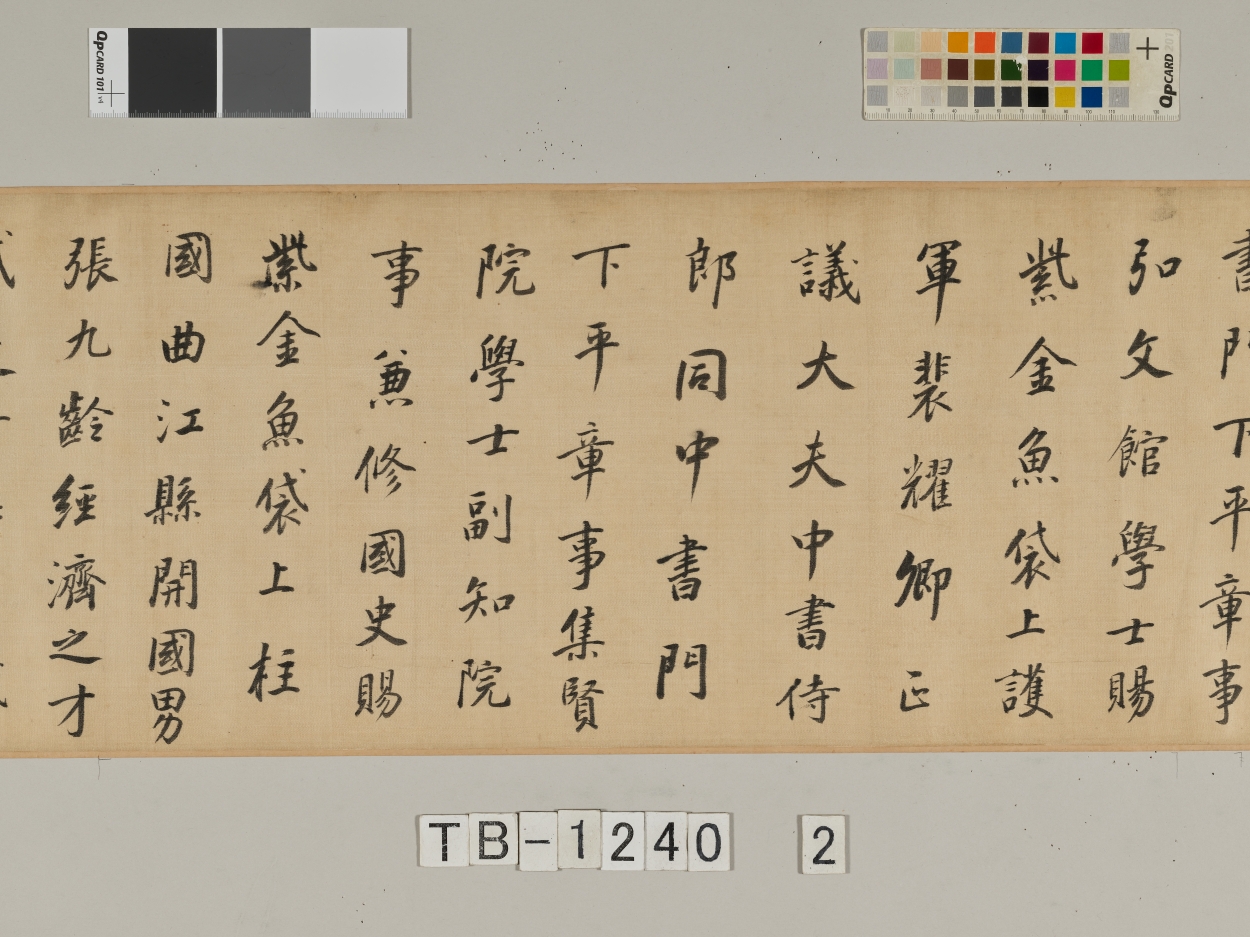 書門下平章事
弘文館學士賜
紫金魚袋上護
軍裴耀卿正
議大夫中書侍
郎同中書門
下平章事集賢
院學士副知院
事兼修國史賜
紫金魚袋上柱
國曲江縣開國男
張九齡經濟之才
QPCARD 101 v4
QPCARD 201
TB-1240 2